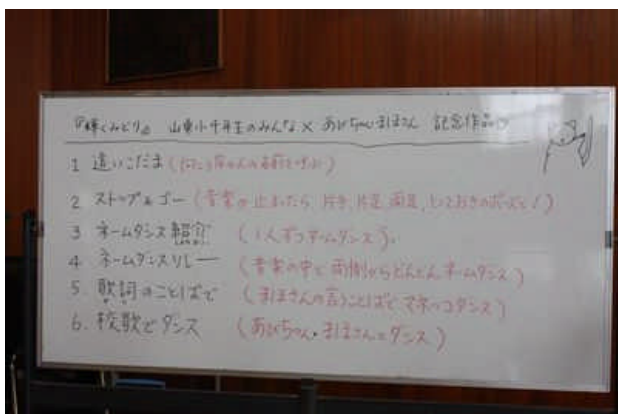 『輝くみどり』 山東小千年生のみんな × あびちゃん まほさん 記念作品
1 遠いこだま (
2 ストップ&ゴー (音楽が止まったら 片手、片足、両足、とっておきのポーズで!)
3 ネームダンス紹介 (1人ずつネームダンス)
4 ネームダンスリレー (音楽の中で 両側からどんどんネームダンス)
5. 歌詞のことばで (まほさんの言うことばでマネっこダンス)
6. 校歌でダンス (あびちゃん・まほさんとダンス)